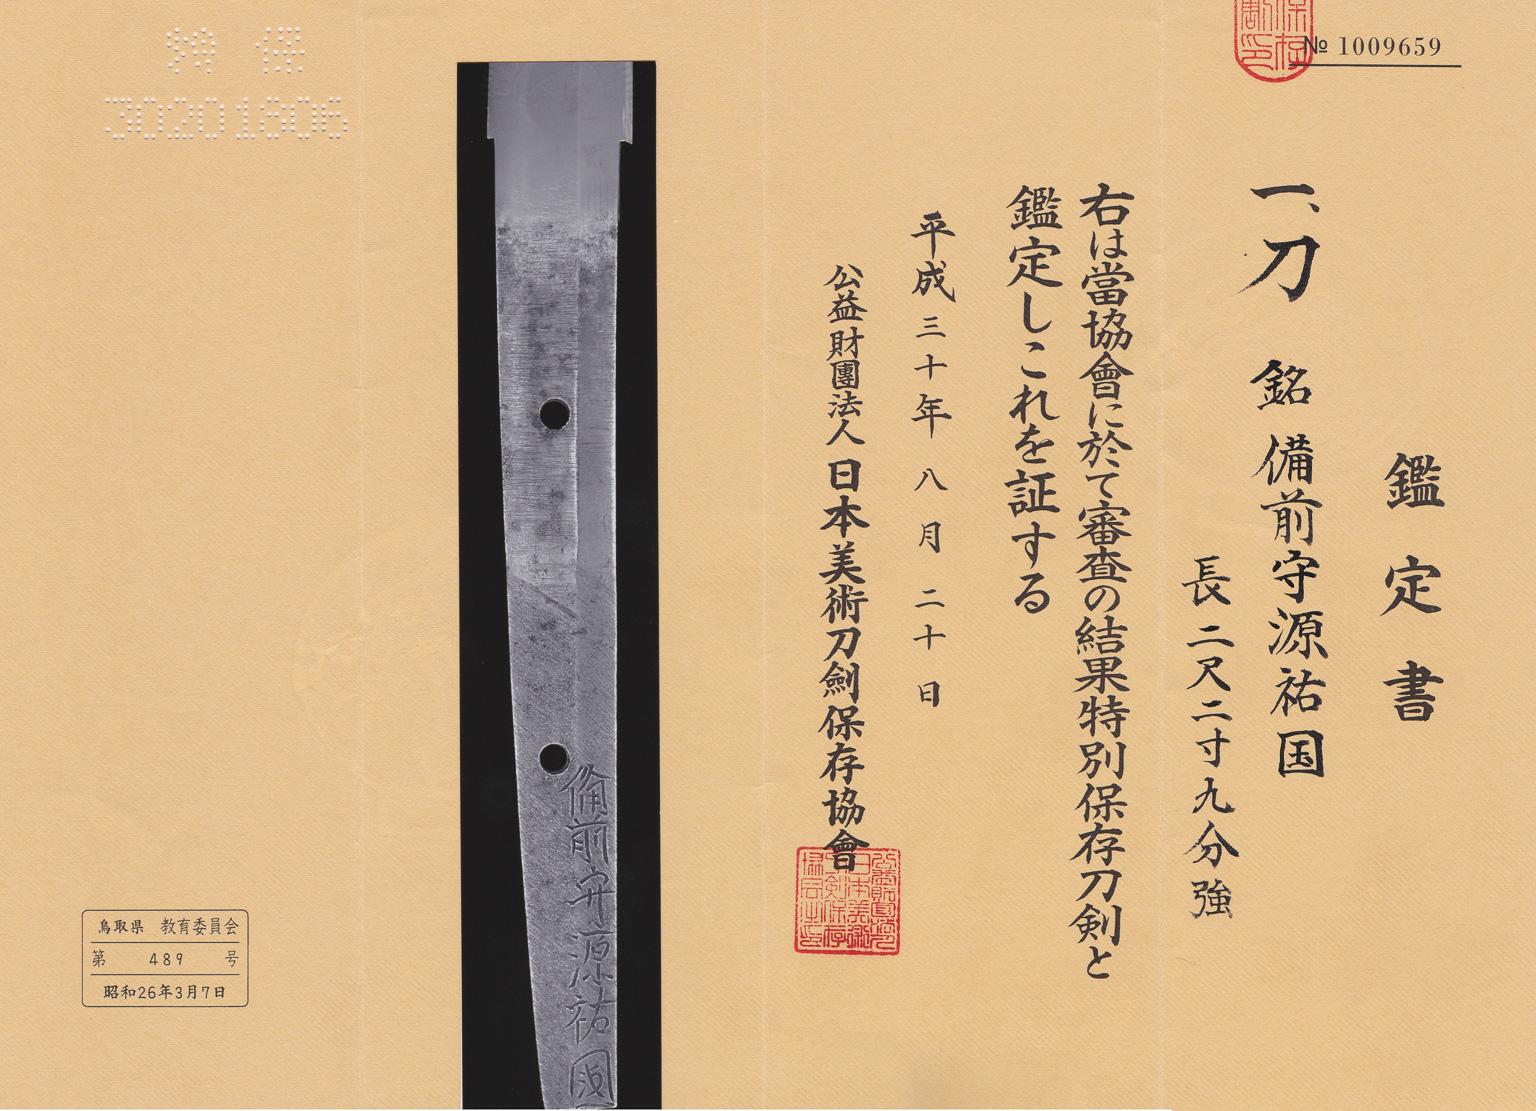 № 1009659
鑑定書
一、刀 銘 備前守源祐国
長二尺二寸九分強
右は當協會に於て審査の結果特別保存刀剣と
鑑定しこれを証する
平成三十年八月二十日
公益財團法人日本美術刀劍保存協會
備前守源祐國
30201806
鳥取県 教育委員会
第 489 号
昭和26年3月7日